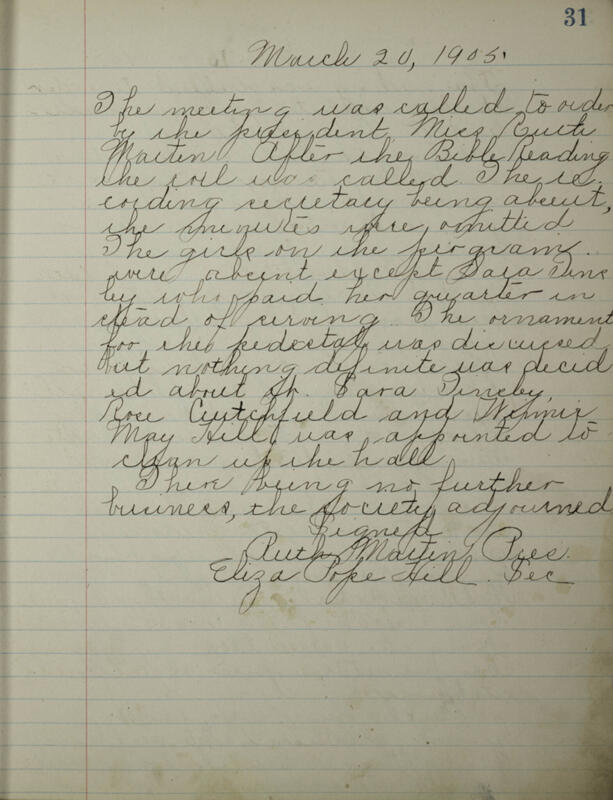 31
March 20, 1905.
The meeting was called to order
by the president, Miss Ruth
Martin After the Bible Reading
the roll was called The re-
cording secretary being absent,
the minutes were omitted
The girls on the program
were absent except Sara Tins
by who paid her quarter in
stead of serving. The ornament
for the pedestal was discussed
but nothing definite was decid
ed about it. Sara Tinsby,
Rose Cutchfield and Winnie
May Hill, was appointed to
clean up the hall
There being no further
business, the society adjourned
Signed
Ruth Martin Pres.
Eliza Pope Hill. Sec